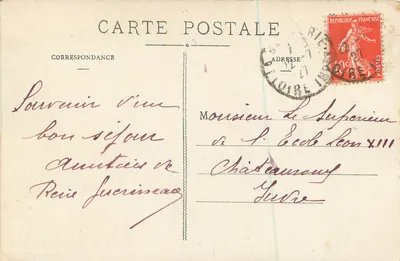 CARTE POSTALE
CORRESPONDANCE
ADRESSE
REPUBLIQUE FRANÇAISE
POSTES
LOIRE INF
Souvenir d'un
bon séjour
Amitiés de
René
Monsieur le Supérieur
de l'Ecole Léon XIII
Châteauroux
Indre